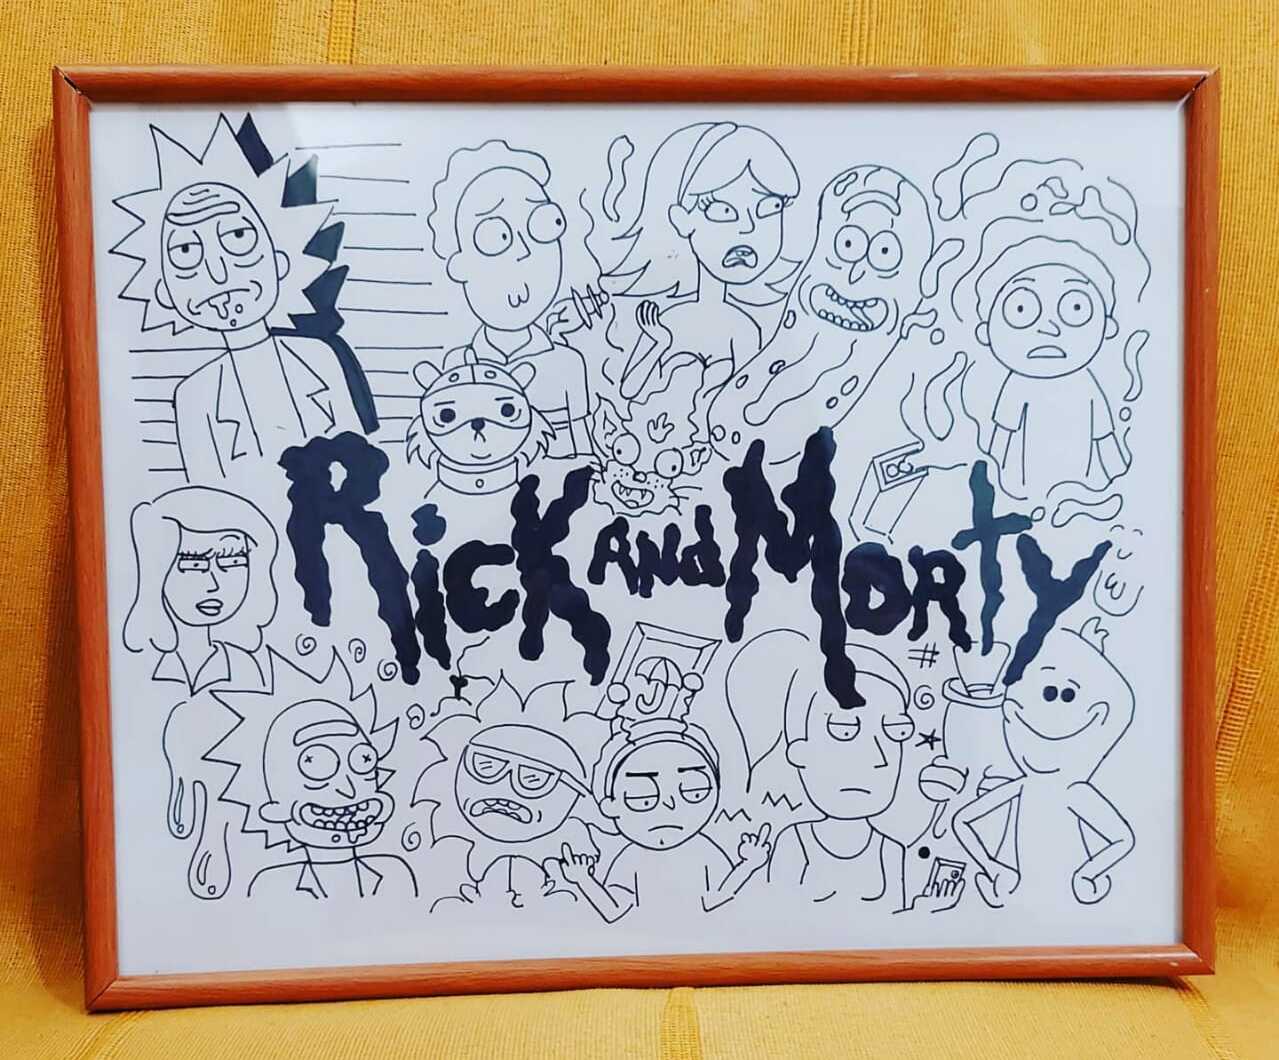 Rick and Morty